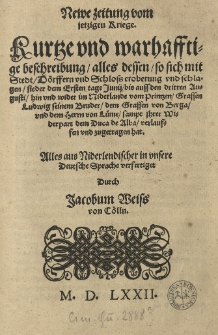 Newe zeitung vom
jetzigen Kriege.
Kurtze vnd warhaffti-
ge beschreibung / alles dessen / so sich mit
Stedt / Dörffern vnd Schloss eroberung vnd schla-
gen / sieder dem Ersten tage Junij bis auff den dritten Au-
gusti / hin vnd wider im Niderlande vom Printzen / Graffen
Ludwig seinem Bruder / dem Graffen von Berga /
vnd dem Herrn von Lüme / sampt jhrer Wi-
derpart dem Duca de Alba / verlauf-
fen vnd zugetragen hat.
Alles aus Niderlendischer in vnsere
Deutsche Sprache verfertiget
Durch
Jacobum Weiss
von Cölln.
M. D. LXXII.